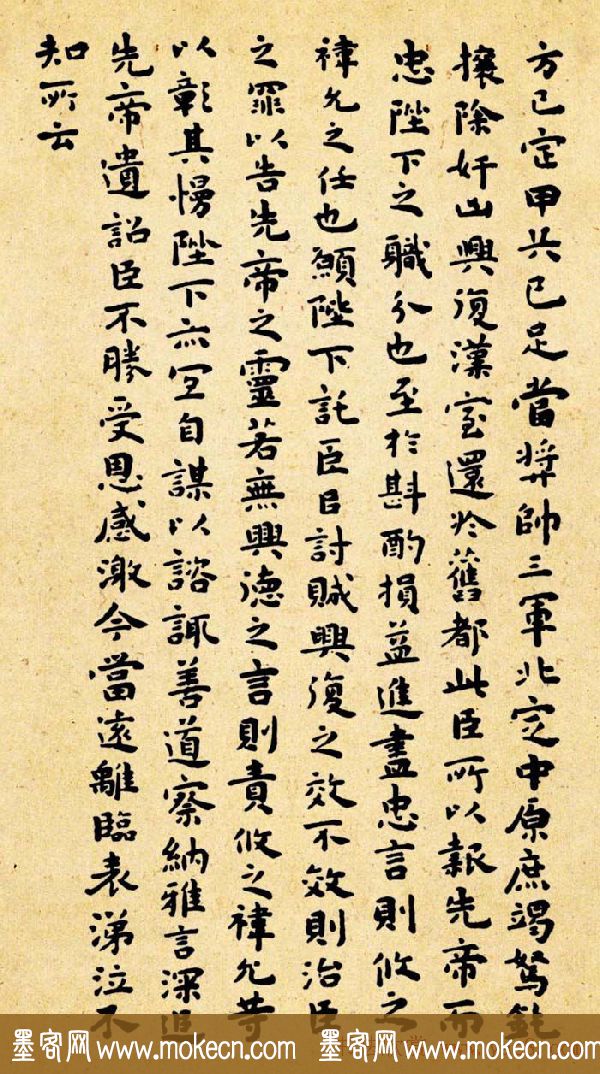 方已定甲兵已足當獎帥三軍北定中原庶竭駑鈍
攘除奸凶興復漢室還於舊都此臣所以報先帝而
忠陛下之職分也至於斟酌損益進盡忠言則攸之
禕允之任也願陛下託臣以討賊興復之效不效則治臣
之罪以告先帝之靈若無興德之言則責攸之禕允等
以彰其慢陛下亦宜自謀以諮諏善道察納雅言深追
先帝遺詔臣不勝受恩感激今當遠離臨表涕泣不
知所云
墨客网 www.mokecn.com 墨客网 www.mokecn.com 墨客网 www.mokecn.com